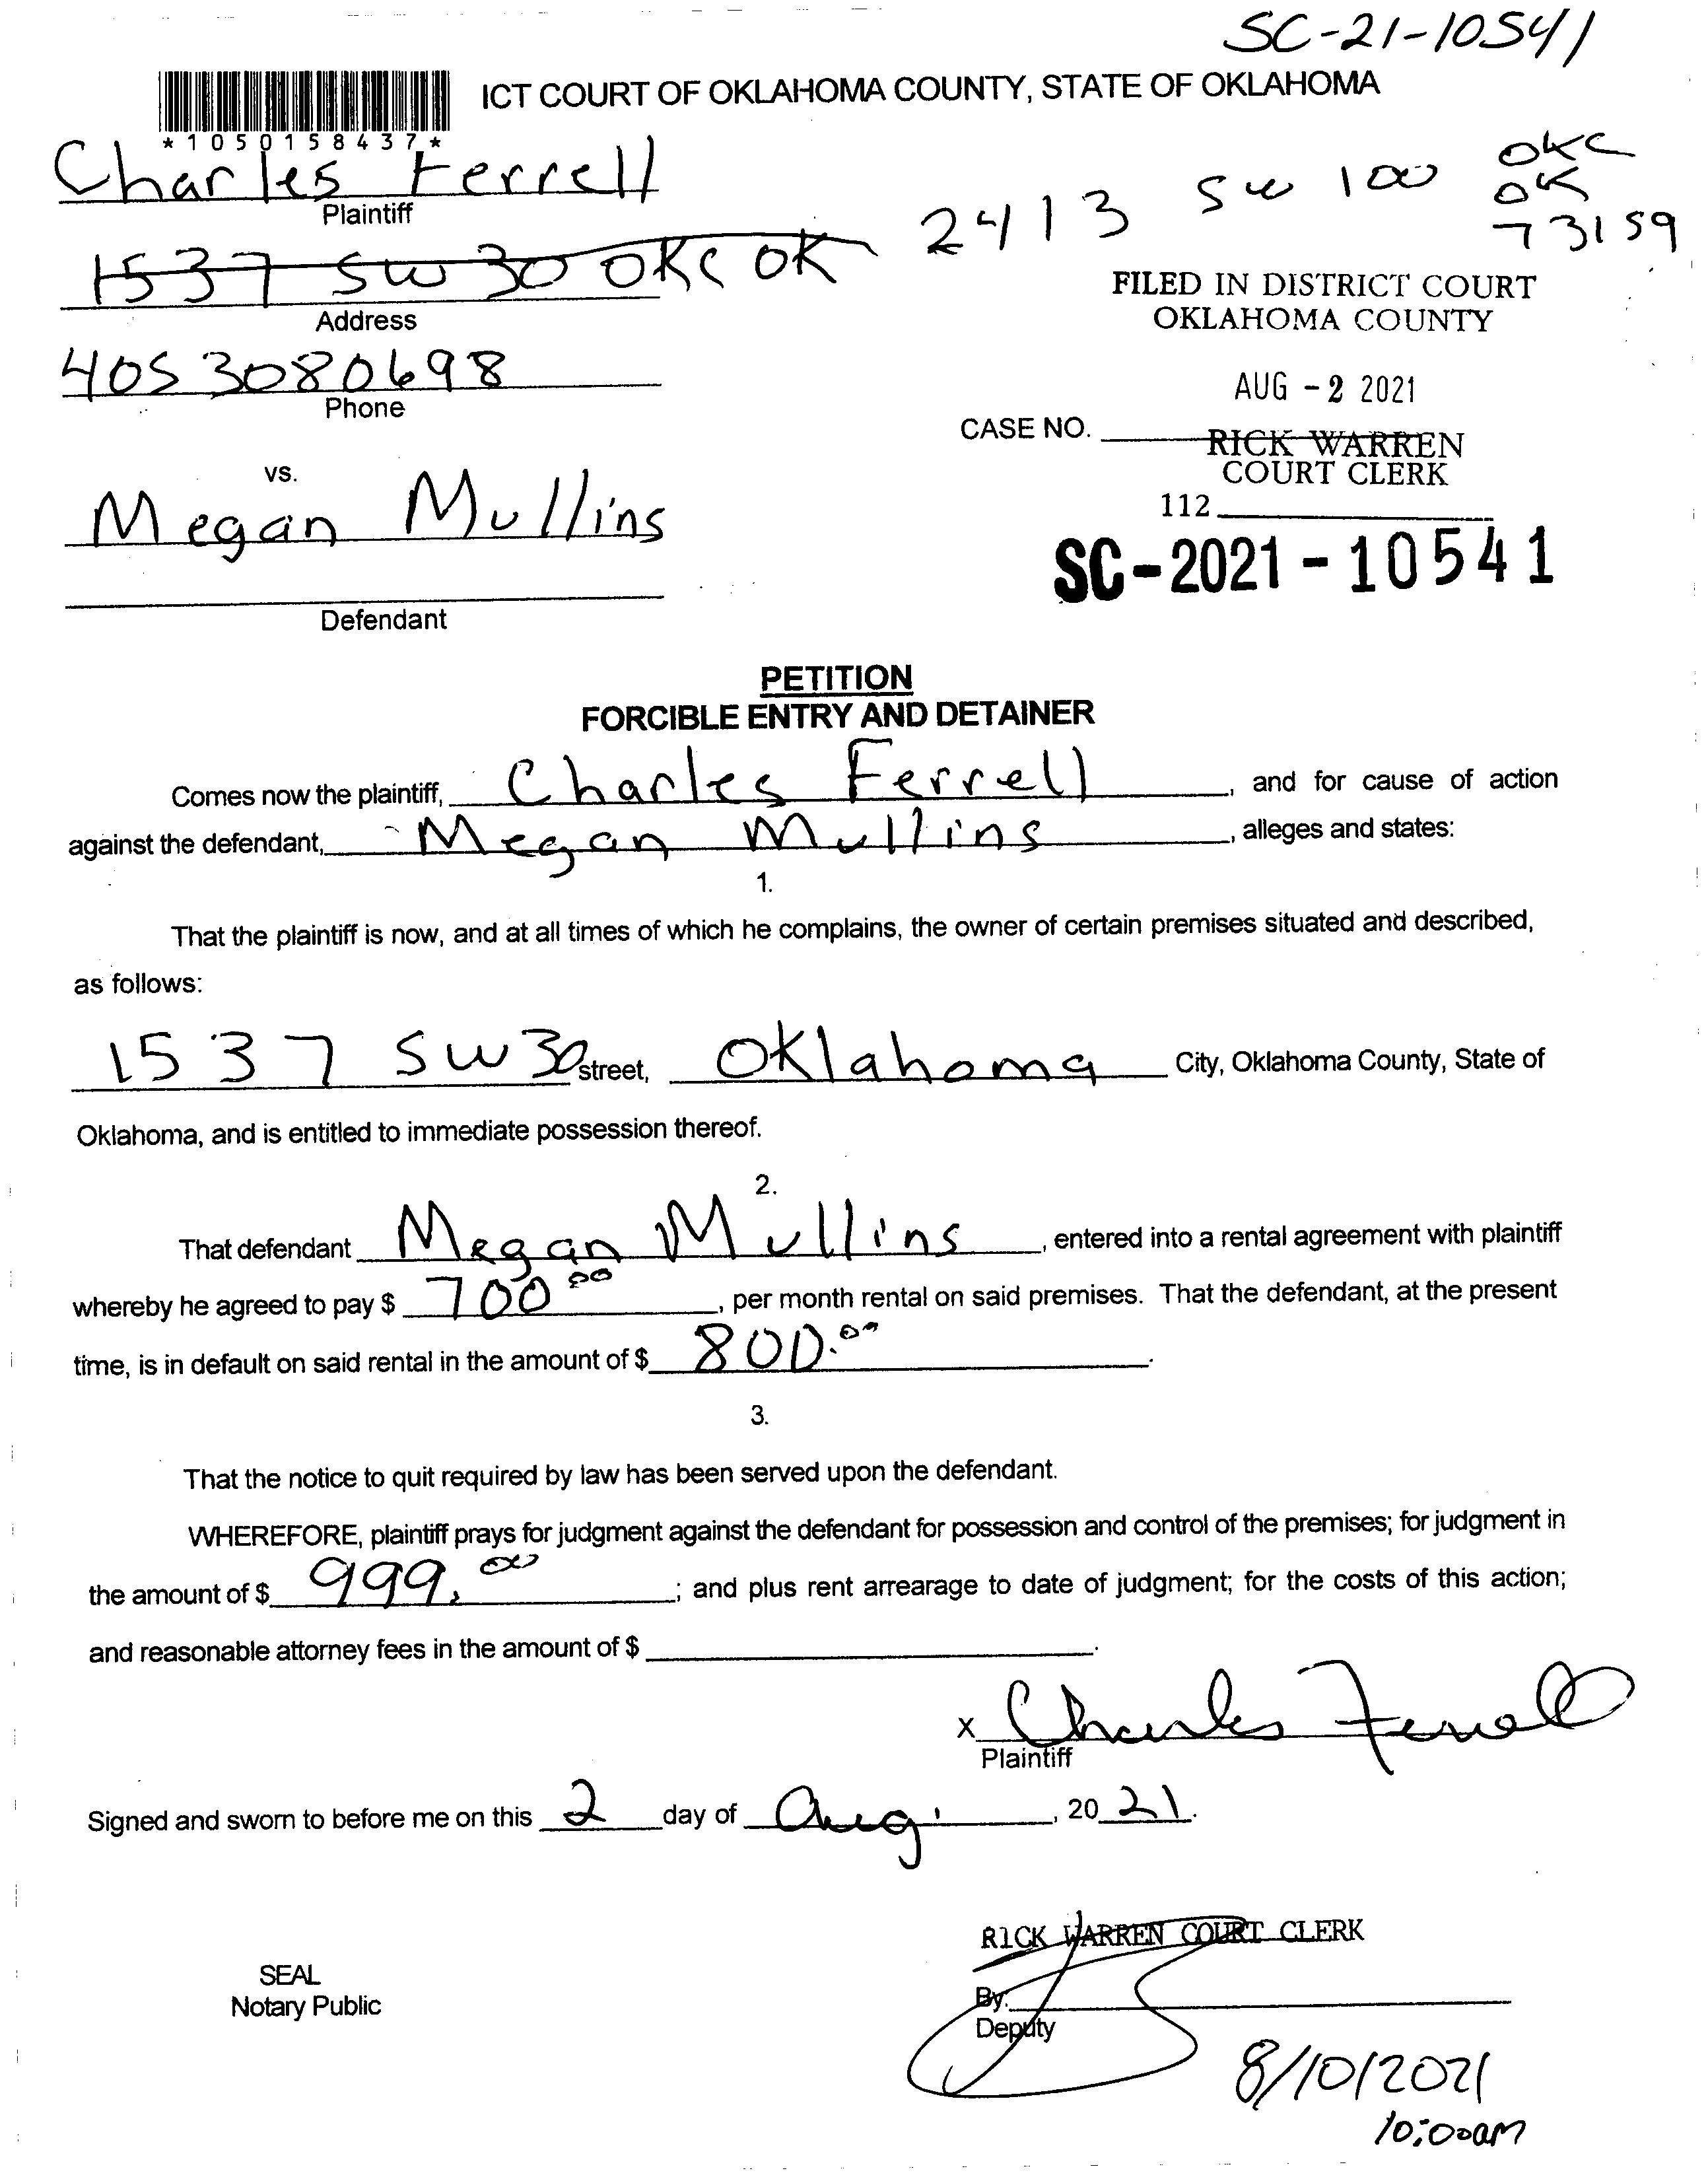 SC-21-10541
ICT COURT OF OKLAHOMA COUNTY, STATE OF OKLAHOMA
*1050158437*
Charles Ferrell
Plaintiff
2413 SW 100 OKC
OK
73159
1537 SW 30 OKC OK
Address
FILED IN DISTRICT COURT
OKLAHOMA COUNTY
4053080698
Phone
AUG - 2 2021
CASE NO.
RICK WARREN
COURT CLERK
vs.
112
Megan Mullins
SC-2021-10541
Defendant
PETITION
FORCIBLE ENTRY AND DETAINER
Comes now the plaintiff, Charles Ferrell, and for cause of action
against the defendant, Megan Mullins, alleges and states:
1.
That the plaintiff is now, and at all times of which he complains, the owner of certain premises situated and described,
as follows:
1537 SW 30 street, Oklahoma City, Oklahoma County, State of
Oklahoma, and is entitled to immediate possession thereof.
2.
That defendant Megan Mullins, entered into a rental agreement with plaintiff
whereby he agreed to pay $ 700 00, per month rental on said premises. That the defendant, at the present
time, is in default on said rental in the amount of $ 800.00.
3.
That the notice to quit required by law has been served upon the defendant.
WHEREFORE, plaintiff prays for judgment against the defendant for possession and control of the premises; for judgment in
the amount of $ 999.00; and plus rent arrearage to date of judgment; for the costs of this action;
and reasonable attorney fees in the amount of $ .
X Charles Ferrell
Plaintiff
Signed and sworn to before me on this 2 day of Aug., 20 21.
RICK WARREN COURT CLERK
SEAL
Notary Public
By:
Deputy
8/10/2021
10:00am